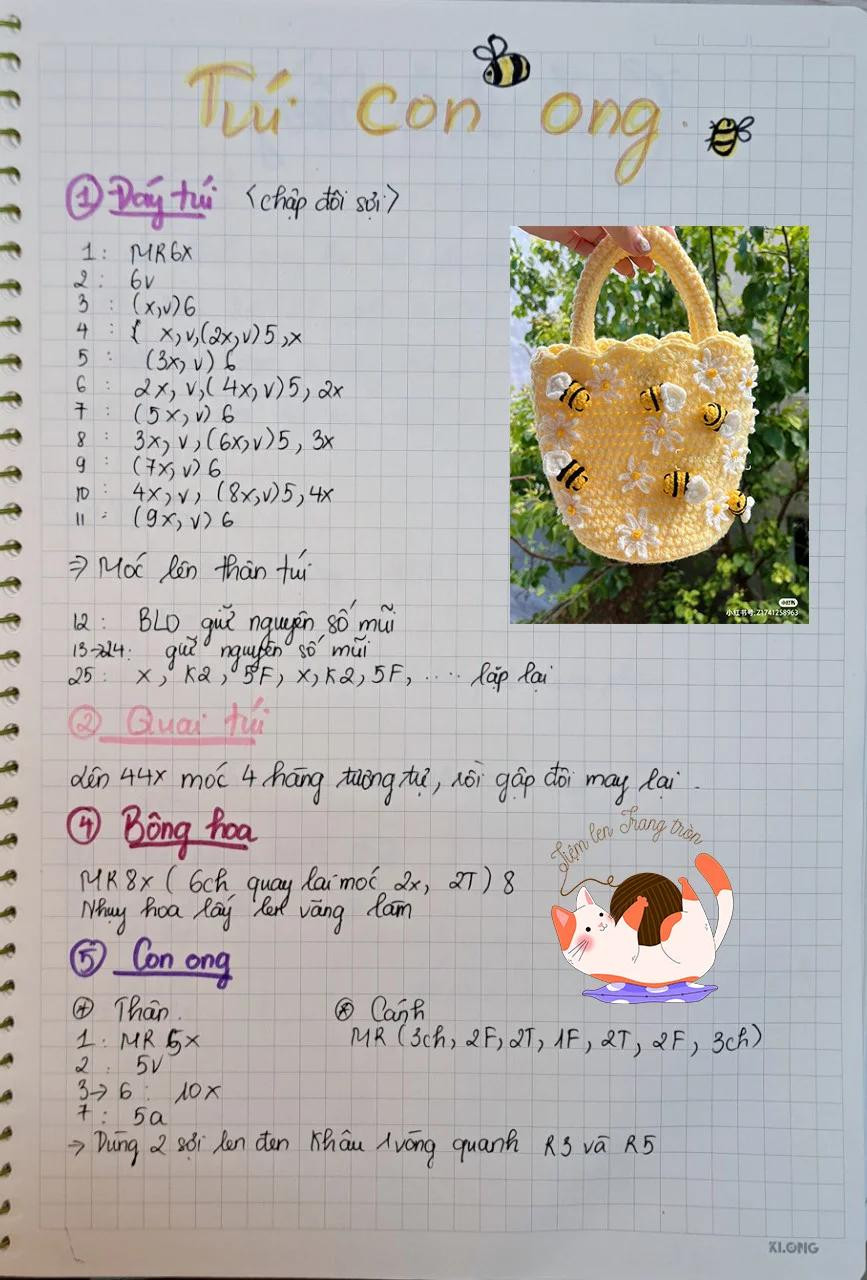 Túi con ong
① Đáy túi <chập đôi sợi>
1: MR6x
2: 6v
3: (x,v)6
4: { x,v,(2x,v)5,x
5: (3x,v)6
6: 2x,v,(4x,v)5,2x
7: (5x,v)6
8: 3x,v,(6x,v)5,3x
9: (7x,v)6
10: 4x,v, (8x,v)5,4x
11: (9x,v)6
⇒ Móc lên thân túi
12: BLO giữ nguyên số mũi
13→24: giữ nguyên số mũi
25: x, K2, 5F, x, K2, 5F, .... lặp lại
小红书
小红书号: Z1741258963
② Quai túi
Lên 44x móc 4 hàng tương tự, rồi gập đôi may lại.
④ Bông hoa
Tiệm len Trang tròn
MR8x (6ch quay lai móc 2x, 2T)8
Nhụy hoa lấy len vàng làm
⑤ Con ong
⊕ Thân.
1: MR 5x
2: 5v
3→6: 10x
7: 5a
⊛ Cánh
MR (3ch, 2F, 2T, 1F, 2T, 2F, 3ch)
→ Dùng 2 sợi len đen khâu 1 vòng quanh R3 và R5
KLONG